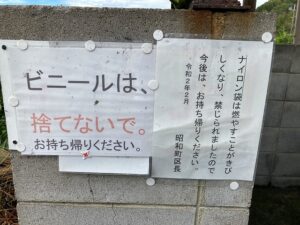 ビニールは、
捨てないで。
お持ち帰りください。
ナイロン袋は燃やすことがきび
しくなり、禁じられましたので
今後は、お持ち帰りください。
令和2年2月
昭和町区長